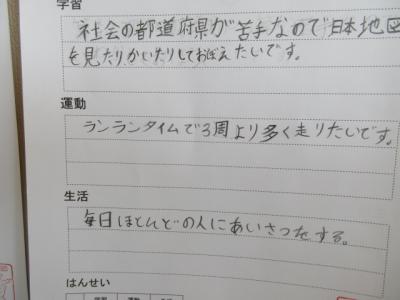 学習
社会の都道府県が苦手なので日本地図
を見たりかいたりしておぼえたいです。
運動
ランランタイムで3周より多く走りたいです。
生活
毎日ほとんどの人にあいさつをする。
はんせい
学習 運動 生活